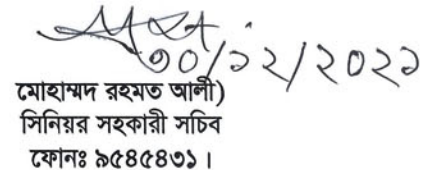 ৩০/১২/২০২১
মোহাম্মদ রহমত আলী)
সিনিয়র সহকারী সচিব
ফোনঃ ৯৫৪৫৪৩১।